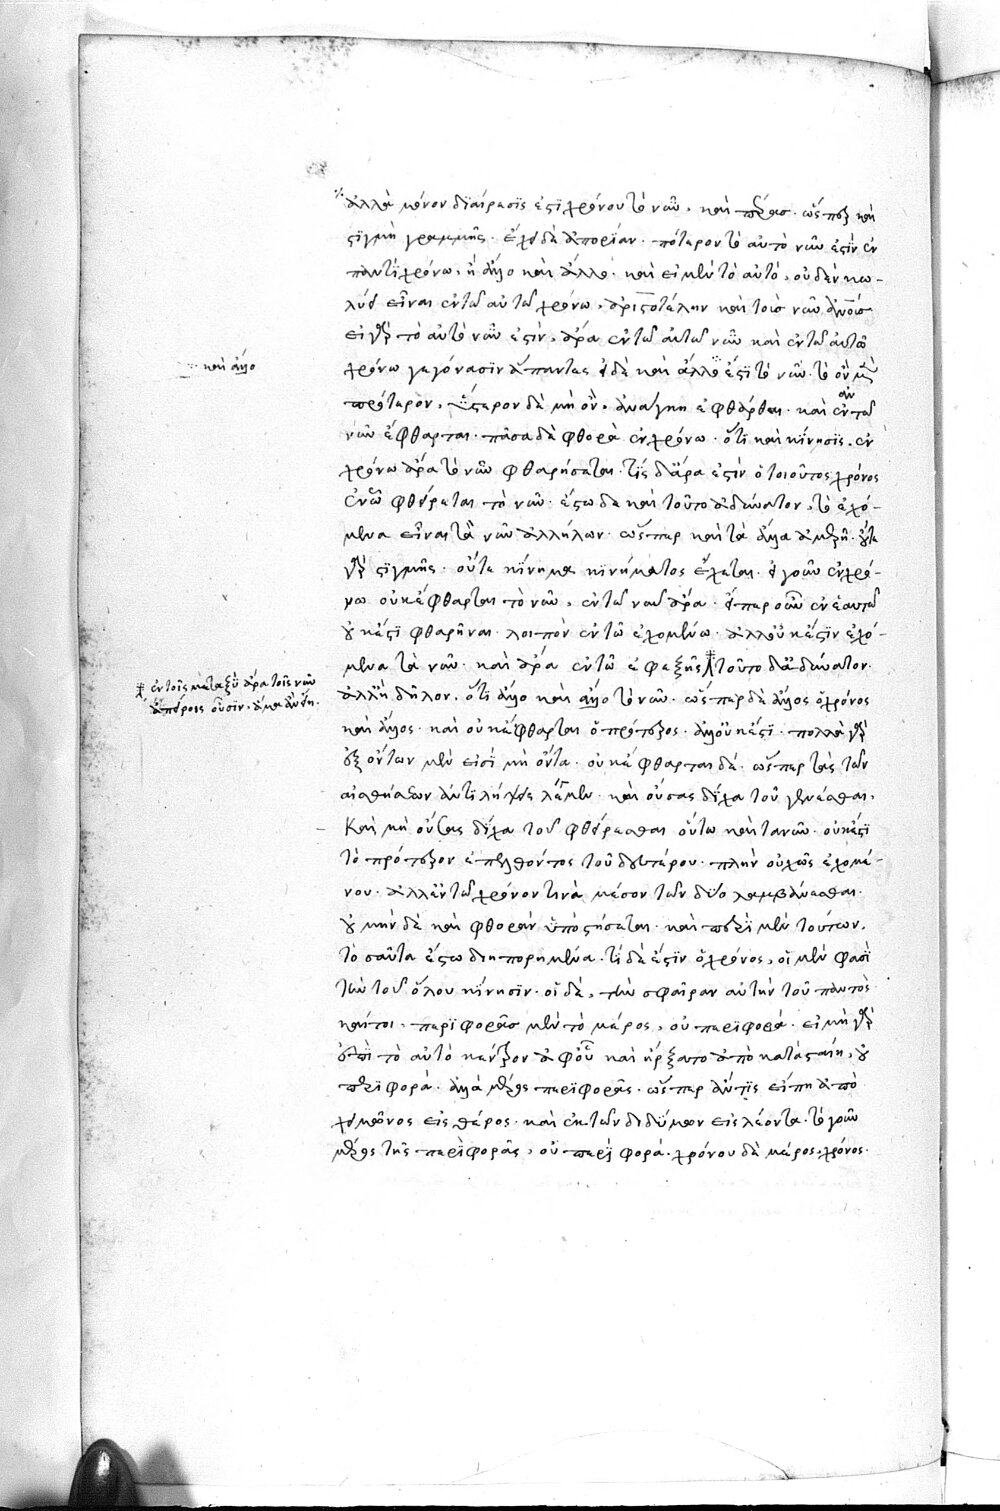 ἀλλὰ μόνον διαίρεσις ἐστὶ χρόνου τὸ νῦν, καὶ πέρας· ὥσπερ καὶ
στιγμὴ γραμμῆς· ἔχει δὲ ἀπορίαν· πότερον τὸ αὐτὸ νῦν ἐστὶν ἐν
παντὶ χρόνω, ἢ ἄλλο καὶ ἄλλο· καὶ εἰ μὲν τὸ αὐτό, οὐδὲν κω-
λύει εἶναι ἐν τῶ αὐτῶ χρόνω, ἀριστοτέλην καὶ τοῖς νῦν ἀνοις
εἰ γὰρ τὸ αὐτὸ νῦν ἐστὶν, ἄρα ἐν τῶ αὐτῶ νῦν καὶ ἐν τῶ αὐτῶ
καὶ ἄλλο
χρόνω γεγόνασιν ἅπαντες εἰ δὲ καὶ ἄλλο ἐστὶ τὸ νῦν· τὸ ὂν μὲν
πρότερον, ὕστερον δὲ μὴ ὂν, ἀνάγκη ἐφθάρθαι· καὶ ἐν τῶ
νῦν ἔφθαρται· πᾶσα δὲ φθορὰ ἐν χρόνω· ὅτι καὶ κίνησις· ἐν
χρόνω ἄρα τὸ νῦν φθαρήσεται· τίς δ' ἄρα ἐστὶν ὁ τοιοῦτος χρόνος
ἐν ὧ φθείρεται τὸ νῦν· ἔστω δὲ καὶ τοῦτο ἀδύνατον, τὸ ἐχό-
μενα εἶναι τὰ νῦν ἀλλήλων· ὥσπερ καὶ τὰ ἄλλα ἀμερῆ· οὔτε
γὰρ στιγμῆς· οὔτε κίνημα κινήματος ἔχεται· εἰ γοῦν ἐν χρό-
νω οὐκ ἔφθαρται τὸ νῦν, ἐν τῶ νῦν ἄρα· εἴπερ οὖν ἐν ἑαυτῶ
οὐκ ἔστι φθαρῆναι· λοιπὸν ἐν τῶ ἐχομένω· ἀλλ' οὐκ ἔστιν ἐχό-
μενα τὰ νῦν· καὶ ἄρα ἐν τῶ ἐφεξῆς τοῦτο δ' ἀδύνατον·
ἐν τοῖς μεταξὺ ἄρα τοῖς νῦν
ἀπείροις οὖσιν, ἅμα ἂν εἴη·
ἀλλ' ἢ δῆλον, ὅτι ἄλλο καὶ ἄλλο τὸ νῦν· ὥσπερ δὲ ἄλλος ὁ χρόνος
καὶ ἄλλος· καὶ οὐκ ἔφθαρται ὁ πρότερος· ἀλλ' οὐκ ἔστι· πολλὰ γὰρ
ἐξ ὄντων μὲν εἰσὶ μὴ ὄντα· οὐκ ἔφθαρται δέ· ὥσπερ τὰς τῶν
αἰσθήσεων ἀντιλήψεις λέγομεν· καὶ οὔσας δίχα τοῦ γενέσθαι,
Καὶ μὴ οὔσας δίχα τοῦ φθείρεσθαι οὕτω καὶ τὰ νῦν· οὐκ ἔστι
τὸ πρότερον ἐπελθόντος τοῦ δευτέρου· πλὴν οὐχ ὡς ἐχομέ-
νου· ἀλλ' ἐν τῶ χρόνον τινὰ μέσον τῶν δύο λαμβάνεσθαι·
οὐ μὴν δὲ καὶ φθορὰν ὑποστήσεται· καὶ περὶ μὲν τούτων,
τοσαῦτα ἔστω διηπορημένα· τί δὲ ἐστὶν ὁ χρόνος, οἱ μὲν φασὶ
τὴν τοῦ ὅλου κίνησιν· οἱ δὲ, τὴν σφαῖραν αὐτὴν τοῦ παντὸς
καίτοι· περιφορᾶς μὲν τὸ μέρος, οὐ περιφορά· εἰ μὴ γὰρ
ἐπὶ τὸ αὐτὸ κέντρον ἀφ' οὗ καὶ ἤρξατο ἀποκαταστάιη, οὐ
περιφορά· ἀλλὰ μέρος περιφορᾶς· ὥσπερ ἄν τις εἴπη ἀπὸ
χειμῶνος εἰς θέρος· καὶ ἐκ τῶν διδύμων εἰς λέοντα· τὸ γοῦν
μέρος τῆς περιφορᾶς, οὐ περιφορά· χρόνου δὲ μέρος, χρόνος·